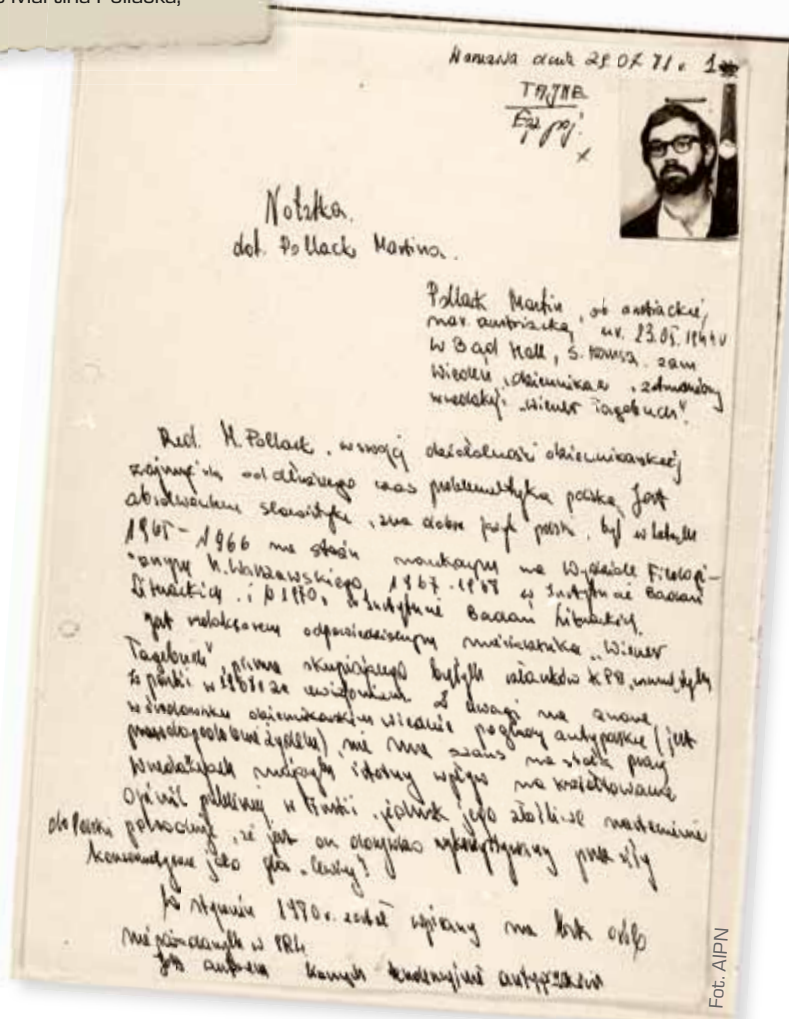 Martina Pollacka,
Warszawa dnia 29.07.81 r. 1
TAJNE
Egz poj.
Notatka
dot. Pollack Martina.
Pollack Martin, ob austriackie,
nar. austriacka, ur. 23.05.1944 r
w Bad Hall, s. zam
Wiedeń, dziennikarz, zatrudniony
w redakcji "Wiener Tagebuch".
Red. M. Pollack, w swojej działalności dziennikarskiej
zajmuje się od dłuższego czasu problematyką polską. Jest
absolwentem slawistyki, zna dobrze język polski, był w latach
1965-1966 na stażu naukowym na Wydziale Filologi-
cznym U. Warszawskiego, 1967-1968 w Instytucie Badań
Literackich i w 1970r. w Instytucie Badań Literackich.
Jest redaktorem odpowiedzialnym miesięcznika "Wiener
Tagebuch", pisma skupiającego byłych członków KPA,
z partii w 1968 r. za rewizjonizm. Z uwagi na znane
w środowisku dziennikarskim Wiednia poglądy antypolskie (jest
prawdopodobnie Żydem), nie ma szans na stałą pracę
w redakcjach mających istotny wpływ na kształtowanie
opinii publicznej w Austrii, jednak jego złośliwe nastawienie
do Polski powoduje, że jest on doraźnie wykorzystywany przez siły
konserwatywne jako głos "lewicy".
W styczniu 1980 r. został wpisany na listę osób
niepożądanych w PRL.
Jest autorem tendencyjnie
Fot. AIPN